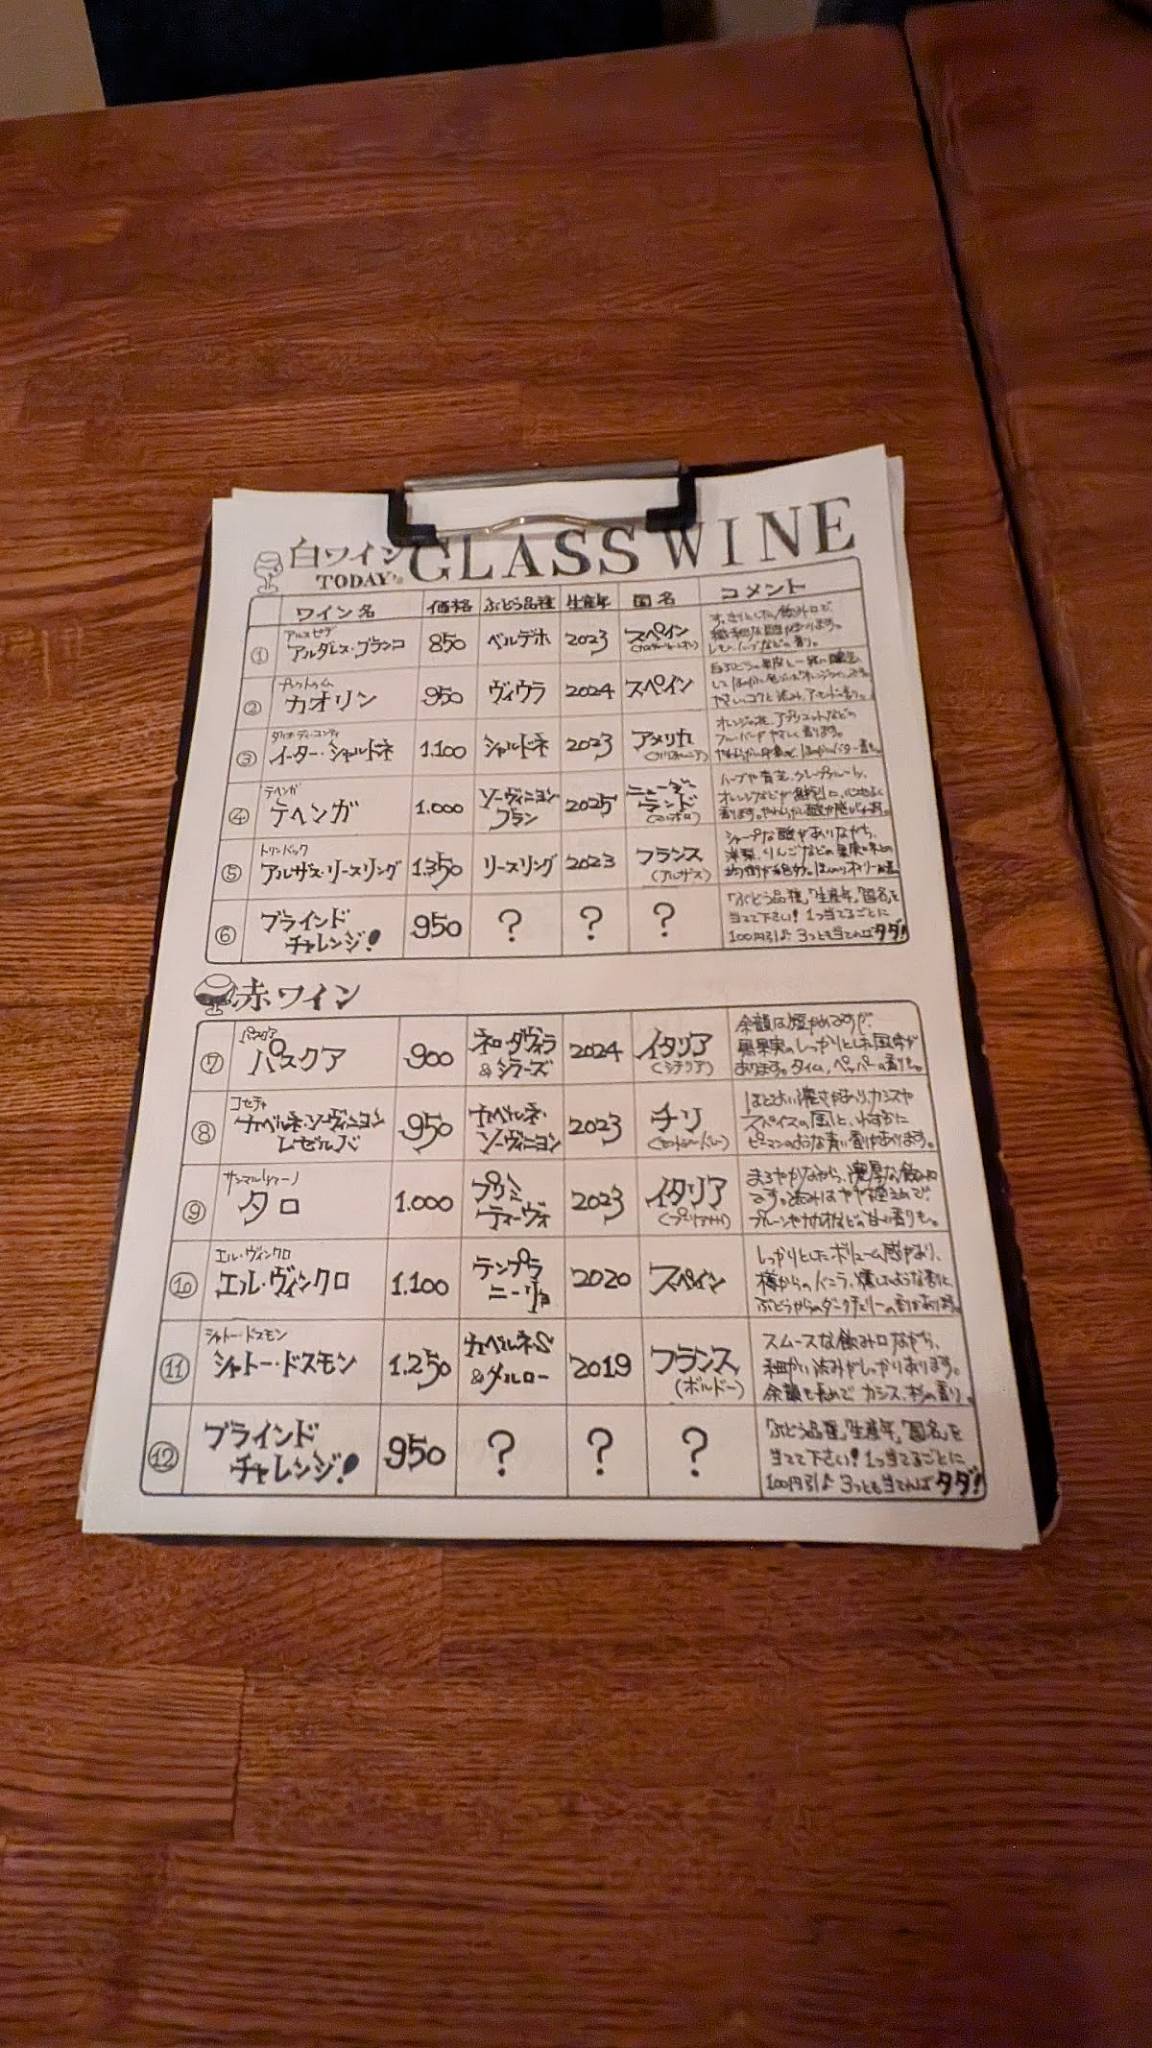 白ワイン
TODAY's GLASS WINE
ワイン名 価格 ぶどう品種 生産年 国名 コメント
① アルダレス・ブランコ 850 ベルデホ 2023 スペイン
すっきりとした飲み口で、
酸があります。
レモン、ハーブなどの香り。
② カオリン 950 ヴィウラ 2024 スペイン
③ イーター・シャルドネ 1.100 シャルドネ 2023 アメリカ
オレンジの花、アプリコットなどの
フレーバーがやさしく香ります。
④ テヘンガ
テヘンガ 1.000 ソーヴィニヨン
ブラン 2025 ニュージー
ランド
ハーブや青芝、グレープフルーツ、
オレンジなどが
香ります。やわらかい酸が感じられます。
⑤ トリンバック
アルザス・リースリング 1.350 リースリング 2023 フランス
(アルザス)
シャープな酸がありながら、
洋梨、りんごなどの果実味との
⑥ ブラインド
チャレンジ! 950 ? ? ?
「ぶどう品種」「生産年」「国名」を
当てて下さい! 1つ当てるごとに
100円引♪ 3つとも当てればタダ!
赤ワイン
⑦ パスクア
パスクア 900 ネロ・ダヴォラ
&シラーズ 2024 イタリア
(シチリア)
余韻は短かめですが、
黒果実のしっかりとした風味が
あります。タイム、ペッパーの香りも。
⑧ コセチャ
カベルネ・ソーヴィニヨン
レゼルバ 950 カベルネ・
ソーヴィニヨン 2023 チリ
ほどよい濃さがあり、カシスや
スパイスの風味と、わずかに
ピーマンのような青い香りがあります。
⑨ サンマルツァーノ
タロ 1.000 プリミ
ティーヴォ 2023 イタリア
(プーリア州)
まろやかながら、濃厚な飲み口
です。渋みはやや控えめで
プルーンやカカオなどの甘い香りも。
⑩ エル・ヴィンクロ
エル・ヴィンクロ 1.100 テンプラ
ニーリョ 2020 スペイン
しっかりとしたボリューム感があり、
樽からのバニラ、燻したような香りに
ぶどうからのダークチェリーの香りがあります。
⑪ シャトー・ドスモン
シャトー・ドスモン 1.250 カベルネS
&メルロー 2019 フランス
(ボルドー)
スムースな飲み口ながら、
細かい渋みがしっかりあります。
余韻も長めで カシス、杉の香り。
⑫ ブラインド
チャレンジ! 950 ? ? ?
「ぶどう品種」「生産年」「国名」を
当てて下さい! 1つ当てるごとに
100円引♪ 3つとも当てれば タダ!